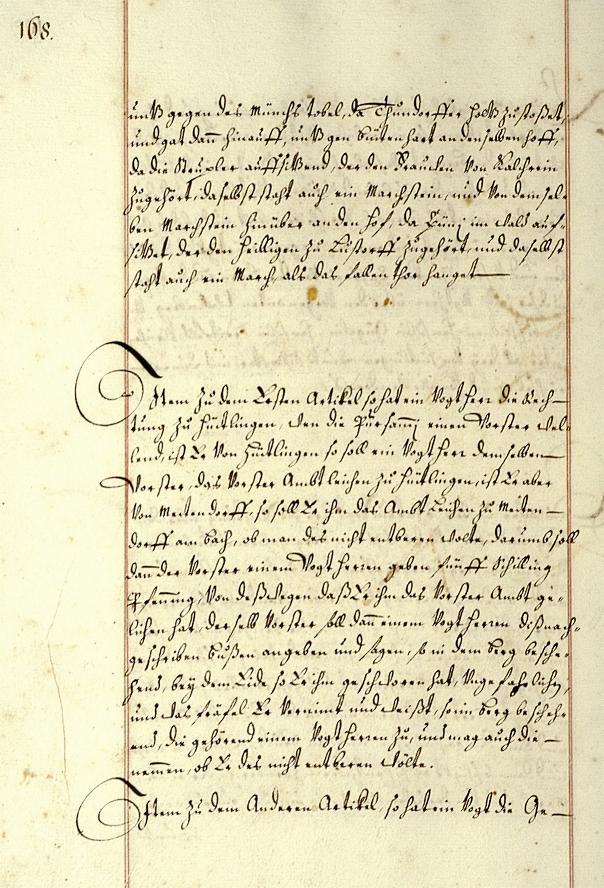 168.
untz gegen des Münchs tobel, da Thundorffer holtz zustoßet,
und gat dann hinauff, untz gen Lüttenhart an denselben hoff,
da die Strupler auffsitzend, der den Frauwen von Kalchrein
zugehört, daselbst staht auch ein Marchstein, und von demsel-
ben Marchstein hinüber an den hof, da Püni im wald auf-
sitzet, der den heilligen zu Lustorff zugehört, und daselbst
staht auch ein March, als das fallen thor hanget
Item zu dem Ersten Artikel so hat ein Vogt herr die Rech-
tung zu Hüttlingen, wen die Pursamj einen Vorster wel-
lend, ist Er von Hüttlingen so soll ein Vogt herr demselben
Vorster, das Vorster Ambt leihen zu Hüttlingen, ist Er aber
von Mettendorff, so soll Er ihm das Ambt Leihen zu Metten-
dorff am bach, ob man des nicht entberen wolte, darumb soll
dann der Vorster einem Vogt herren geben fünff Schilling
Pfenning, von deßwegen daß Er ihm das Vorster Ambt ge-
lichen hat, derselb Vorster soll dann einem Vogt herren diß nach-
geschriben bußen angeben und sagen, so in dem berg besche-
hend, bey dem Eide so Er ihm geschworen hat, Ungefahrlichen,
und was fräfel Er vernimt und weißt, so im berg bescheh-
end, die gehörend einem Vogt herren zu, und mag auch die
nemmen, ob Er des nicht entberen wölte.
Item zu dem Anderen Artikel, so hat ein Vogt die Ge-